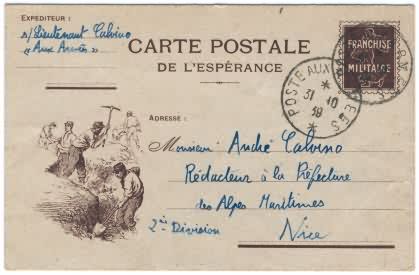 EXPÉDITEUR :
s/Lieutenant Calvino
"Aux Armées"
CARTE POSTALE
DE L'ESPÉRANCE
FRANCHISE
MILITAIRE
POSTE AUX ARMÉES
31 10
39
ADRESSE :
Monsieur André Calvino
Rédacteur à la Préfecture
des Alpes Maritimes
2ème Division Nice